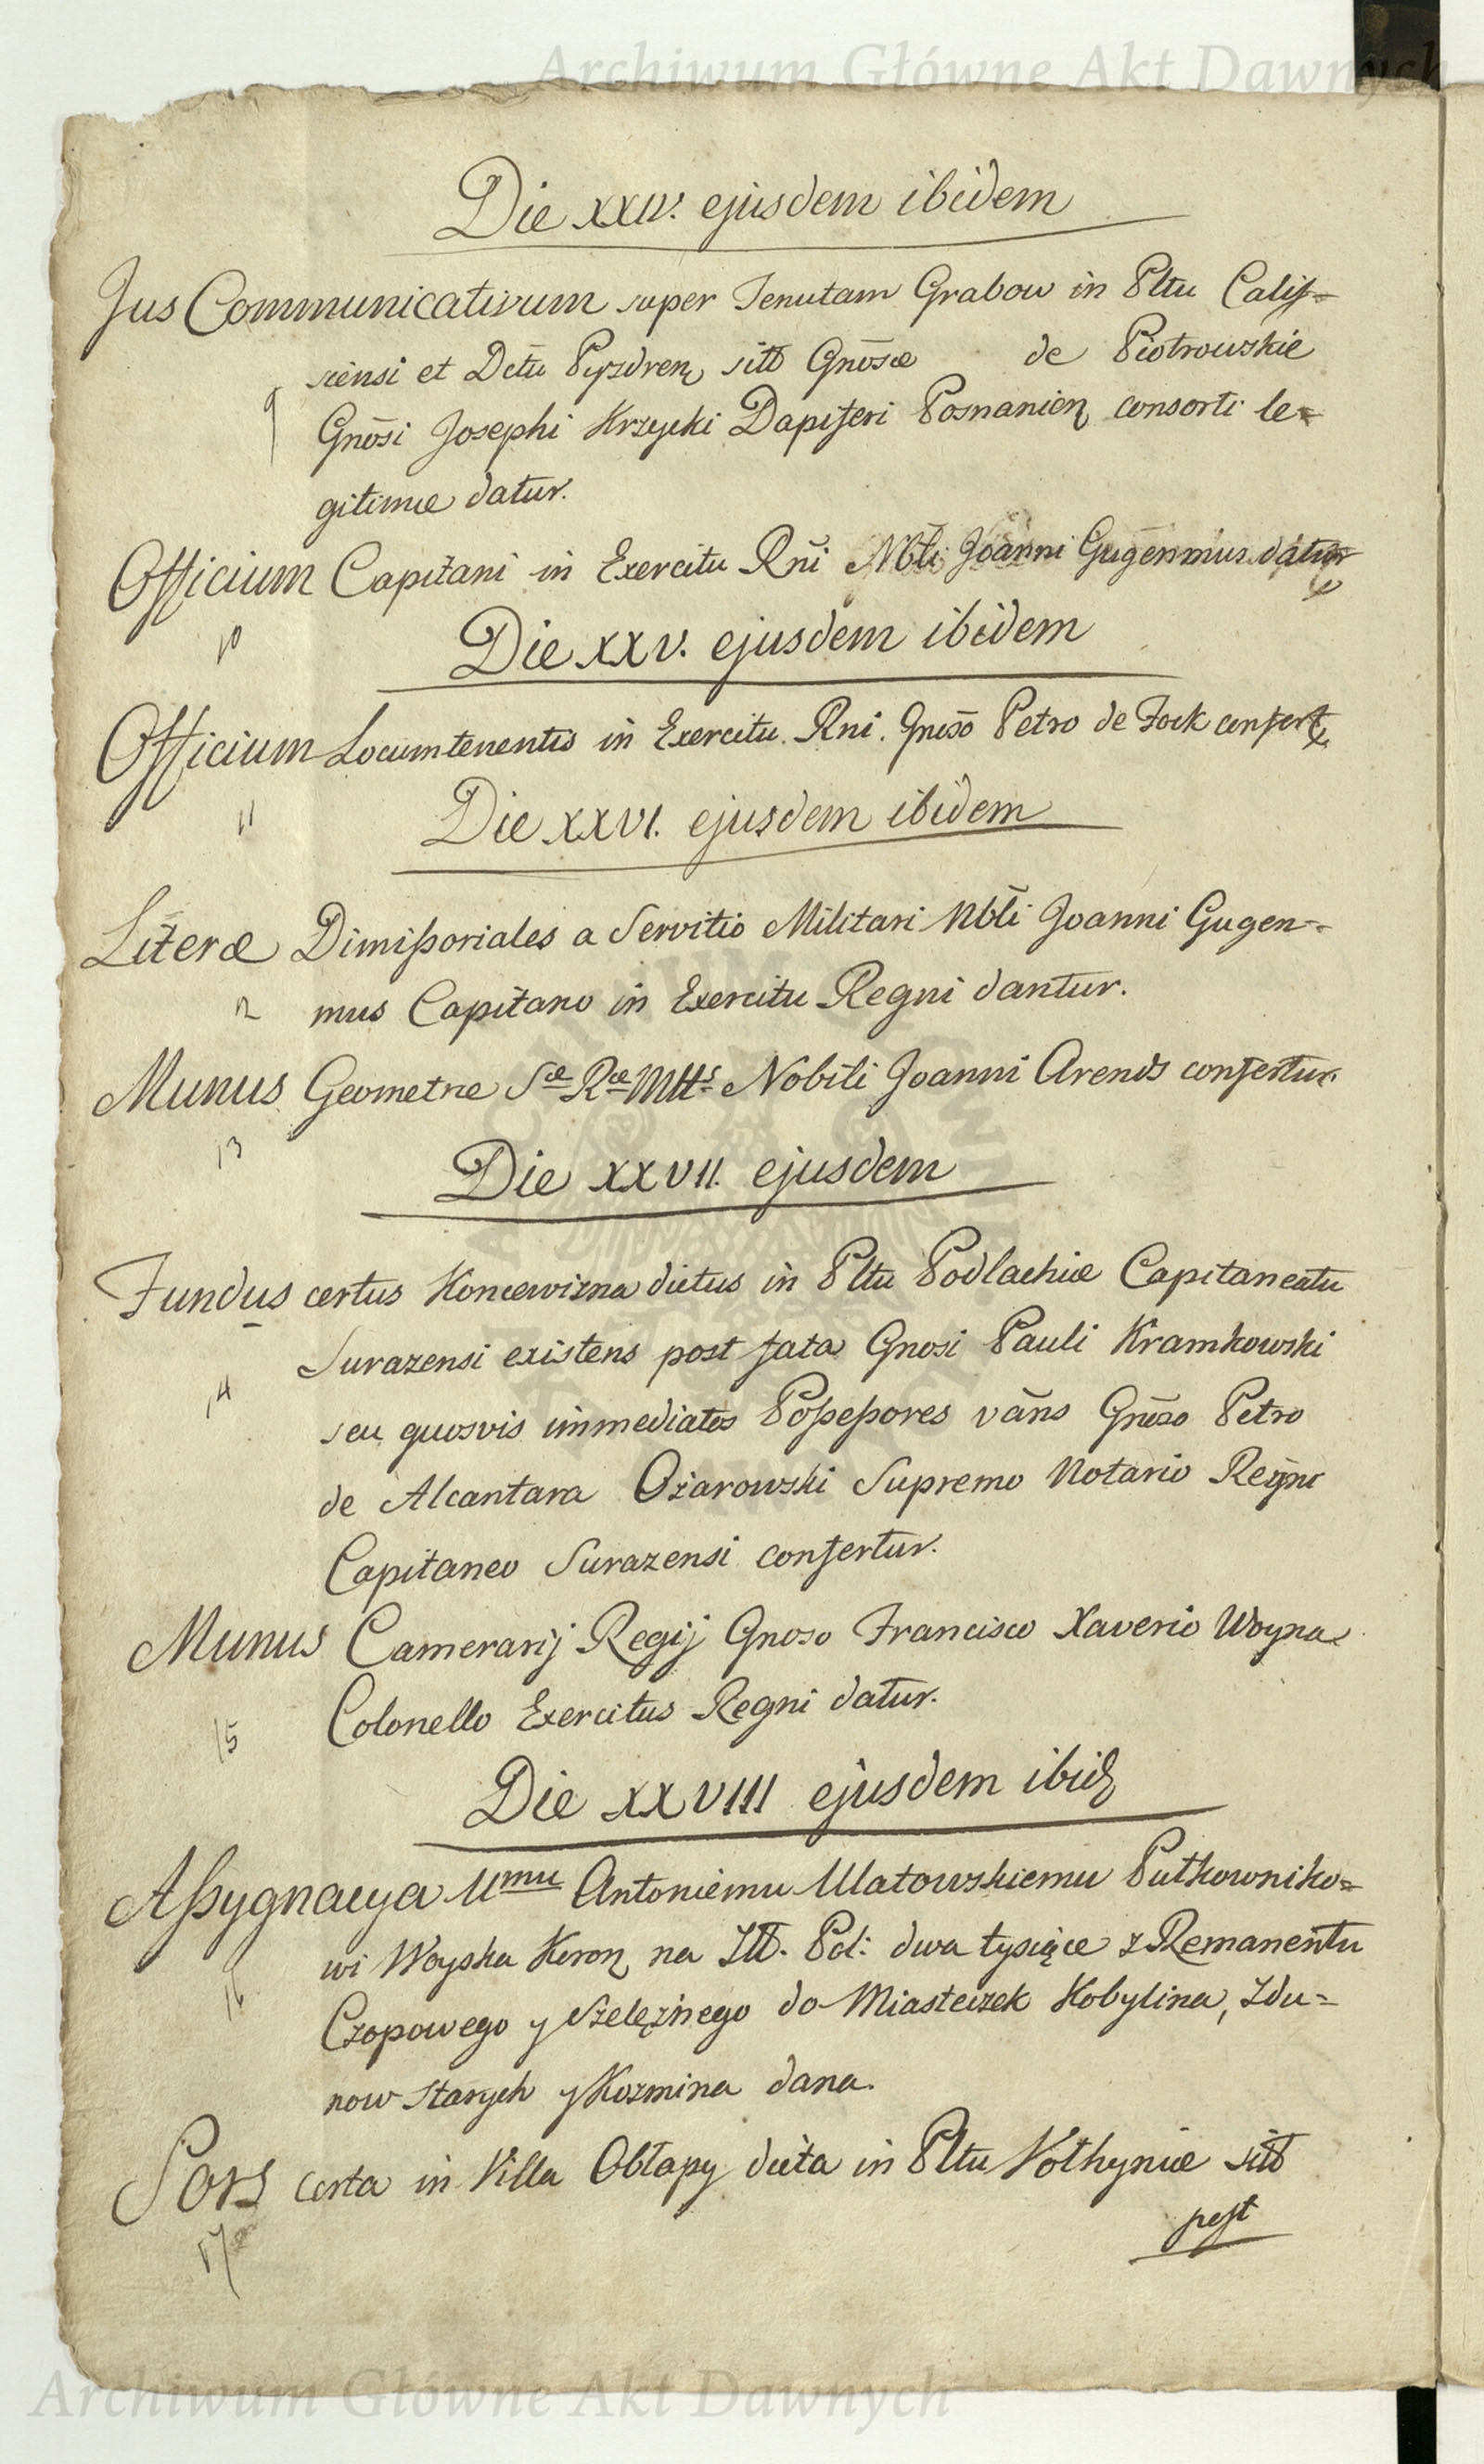 Archiwum Główne Akt Dawnych
Die XXIV. ejusdem ibidem
Jus Communicativum super Tenutam Grabow in Pltu Calis=
siensi et Dctu Pyzdren sitt Gnosæ de Piotrowskie
9 Gnosi Josephi Krzycki Dapiferi Posnanien consorti le=
gitimæ datur.
Officium Capitani in Exercitu Rni Nbli Joanni Gugenmus datur
10
Die XXV. ejusdem ibidem
Officium Locumtenentis in Exercitu Rni. Gnoso Petro de Fock confert
11
Die XXVI. ejusdem ibidem
Literæ Dimißoriales a Servitio Militari Nbli Joanni Gugen=
12 mus Capitano in Exercitu Regni dantur.
Munus Geometræ Sæ Ræ Mttis Nobili Joanni Arends confertur
13
Die XXVII. ejusdem
Fundus certus Koncewizna dictus in Pltu Podlachiæ Capitaneatu
Surazensi existens post fata Gnosi Pauli Kramkowski
14
seu quosvis immediatos Poßeßores vans Gnoso Petro
de Alcantara Ożarowski Supremo Notario Regni
Capitaneo Surazensi confertur.
Munus Camerarij Regij Gnoso Francisco Xaverio Woyna
15 Colonello Exercitus Regni datur.
Die XXVIII ejusdem ibid
Aßygnacya Umu Antoniemu Ulatowskiemu Pułkowniko=
wi Woyska Koron na Złł. Pol: dwa tysiące z Remanentu
16
Czopowego y Szelężnego do Miasteczek Kobylina, Zdu=
now Starych y Kozmina dana.
Sors certa in Villa Obłapy dicta in Pltu Volhyniæ sitt
17
post
Archiwum Główne Akt Dawnych